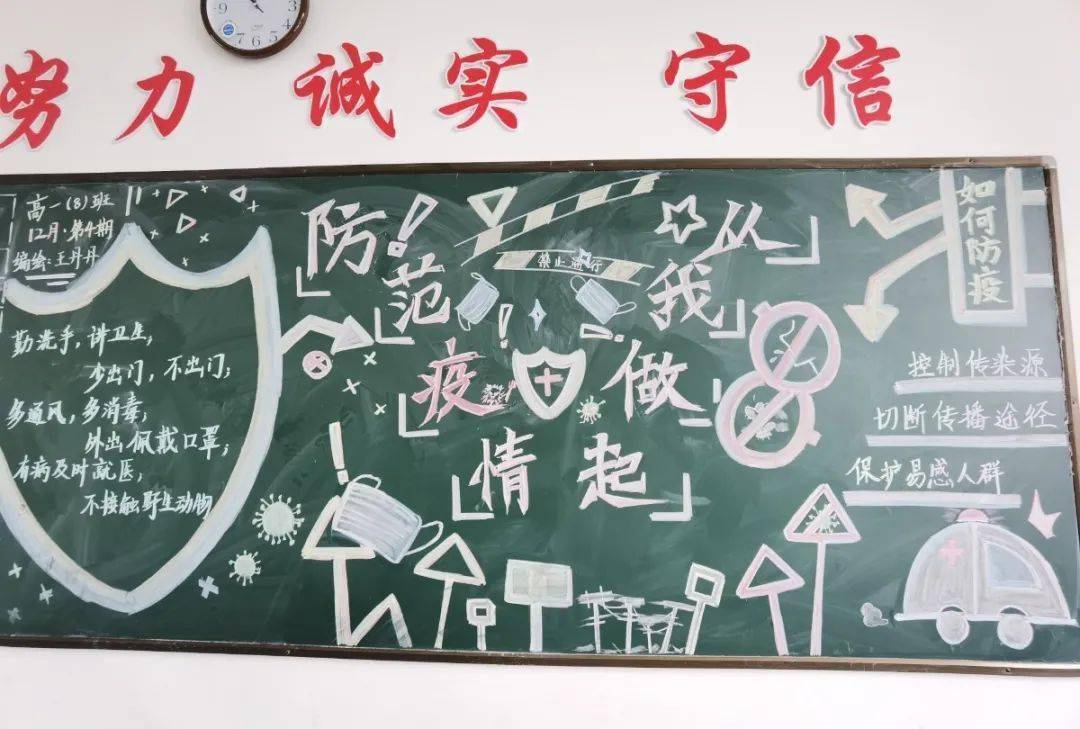 9 3 8 4 7 6 5
努力 诚实 守信
高一(8)班
12月·第4期
编绘:王丹丹
勤洗手,讲卫生,
少出门,不出门;
多通风,多消毒,
外出佩戴口罩;
有病及时就医,
不接触野生动物
防范疫情
!
禁止通行
从我做起
如何防疫
控制传染源
切断传播途径
保护易感人群